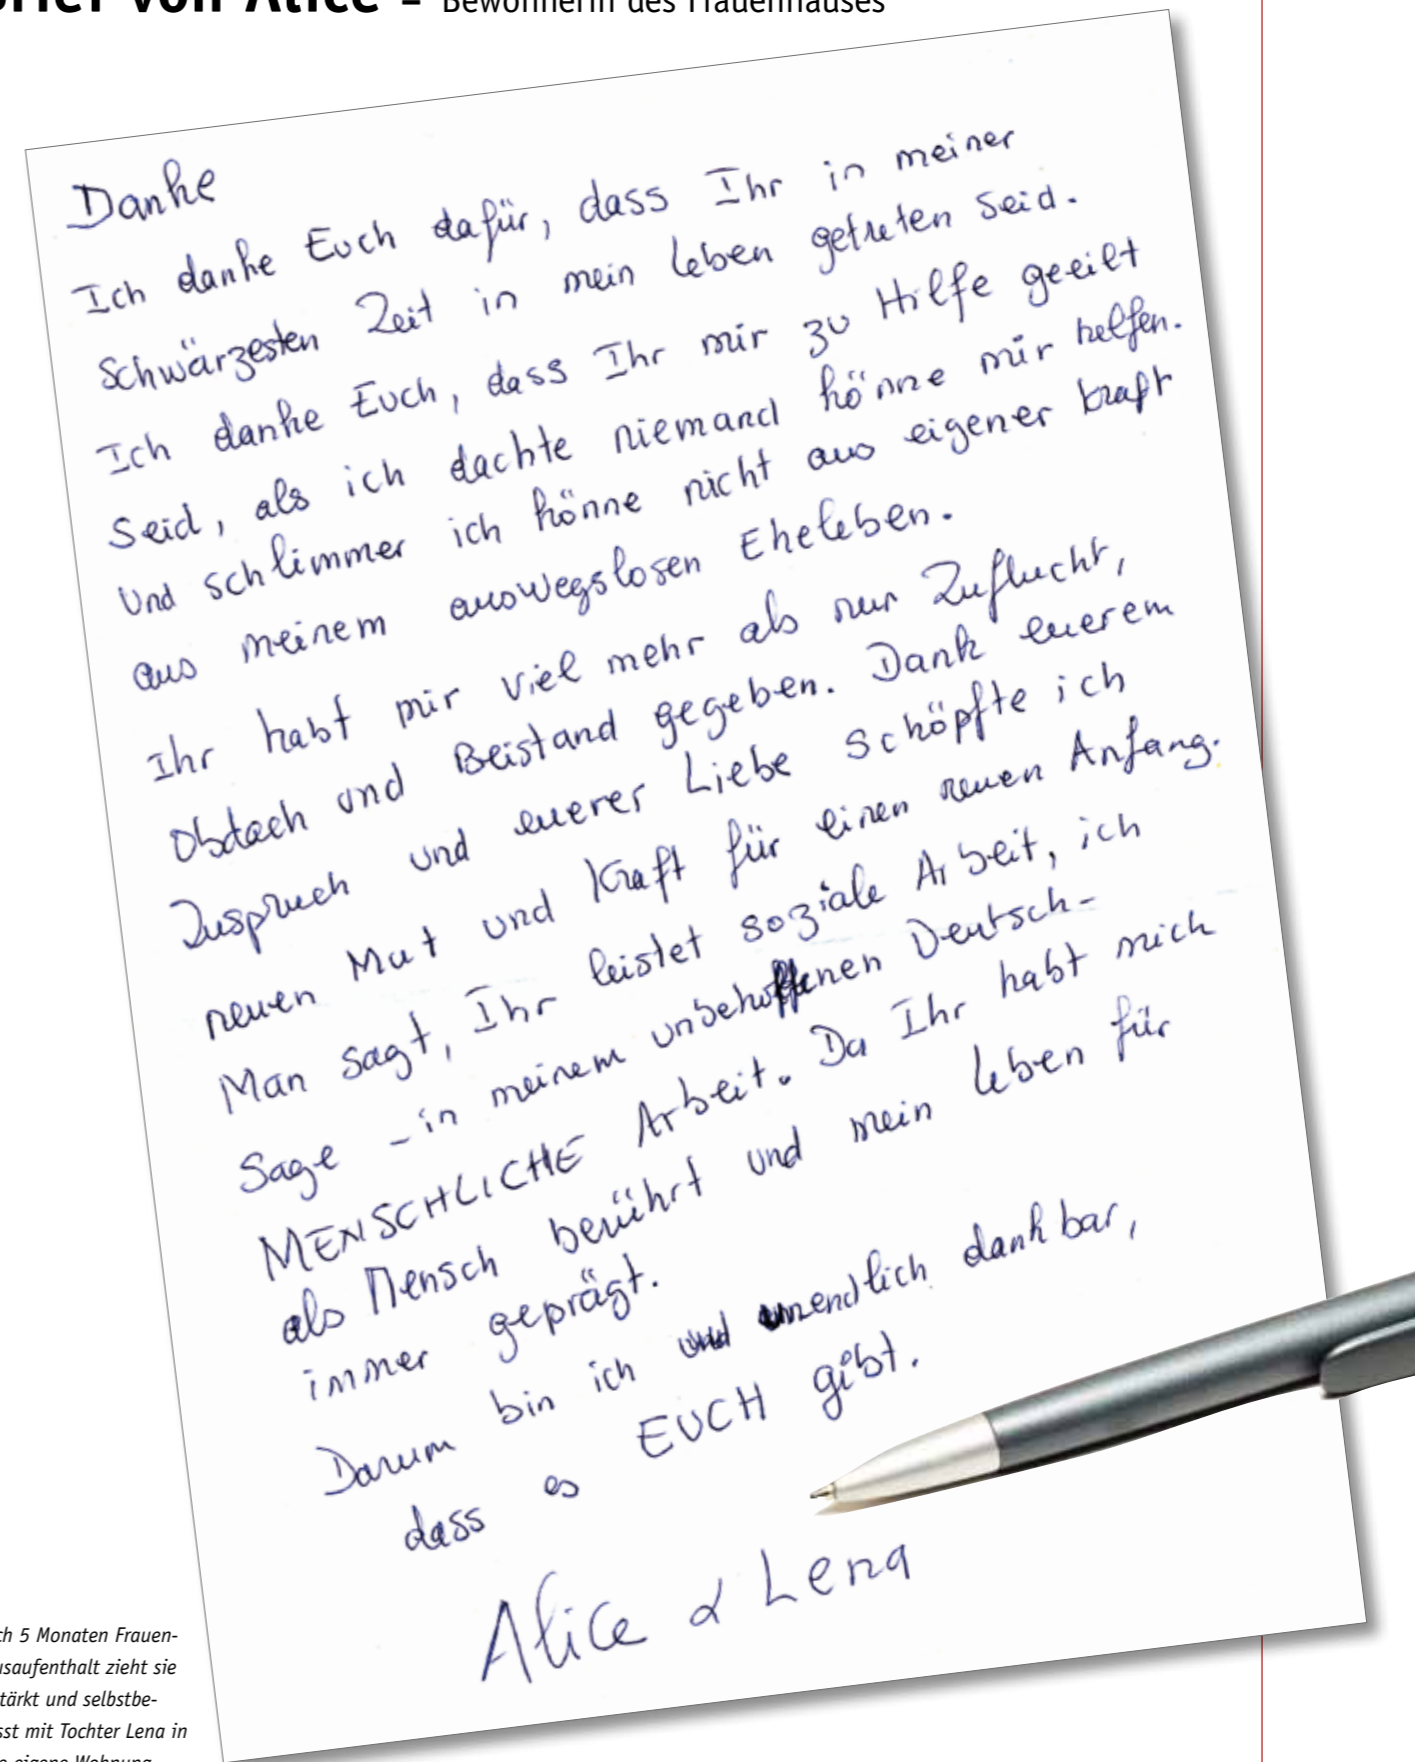 Brief von Alice – Bewohnerin des Frauenhauses
Danke
Ich danke Euch dafür, dass Ihr in meiner
Schwärzesten Zeit in mein leben getreten seid.
Ich danke Euch, dass Ihr mir zu Hilfe geeilt
Seid, als ich dachte niemand könne mir helfen.
Und schlimmer ich könne nicht aus eigener kraft
aus meinem auswegslosen Eheleben.
Ihr habt mir viel mehr als nur Zuflucht,
Obdach und Beistand gegeben. Dank euerem
Zuspruch und euerer Liebe schöpfte ich
neuen Mut und Kraft für einen neuen Anfang.
Man sagt, Ihr leistet soziale Arbeit, ich
Sage – in meinem unbeholfenen Deutsch-
MENSCHLICHE Arbeit. Da Ihr habt mich
als Mensch berührt und mein leben für
immer geprägt.
Darum bin ich unendlich dankbar,
dass es EUCH gibt.
Alice & Lena
ch 5 Monaten Frauen-
usaufenthalt zieht sie
tärkt und selbstbe-
sst mit Tochter Lena in
e eigene Wohnung